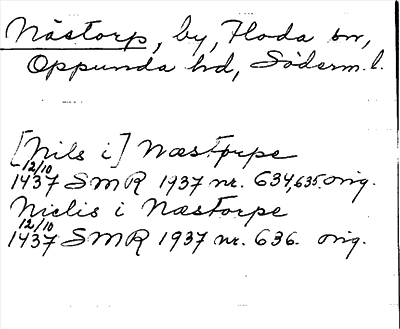 Nästorp, by, Floda sn,
Oppunda hd, Söderm. l.
[Nils i] Næstorpe
12/10
1437 SMR 1937 nr. 634,635 orig.
Niclis i Næstorpe
12/10
1437 SMR 1937 nr. 636. orig.